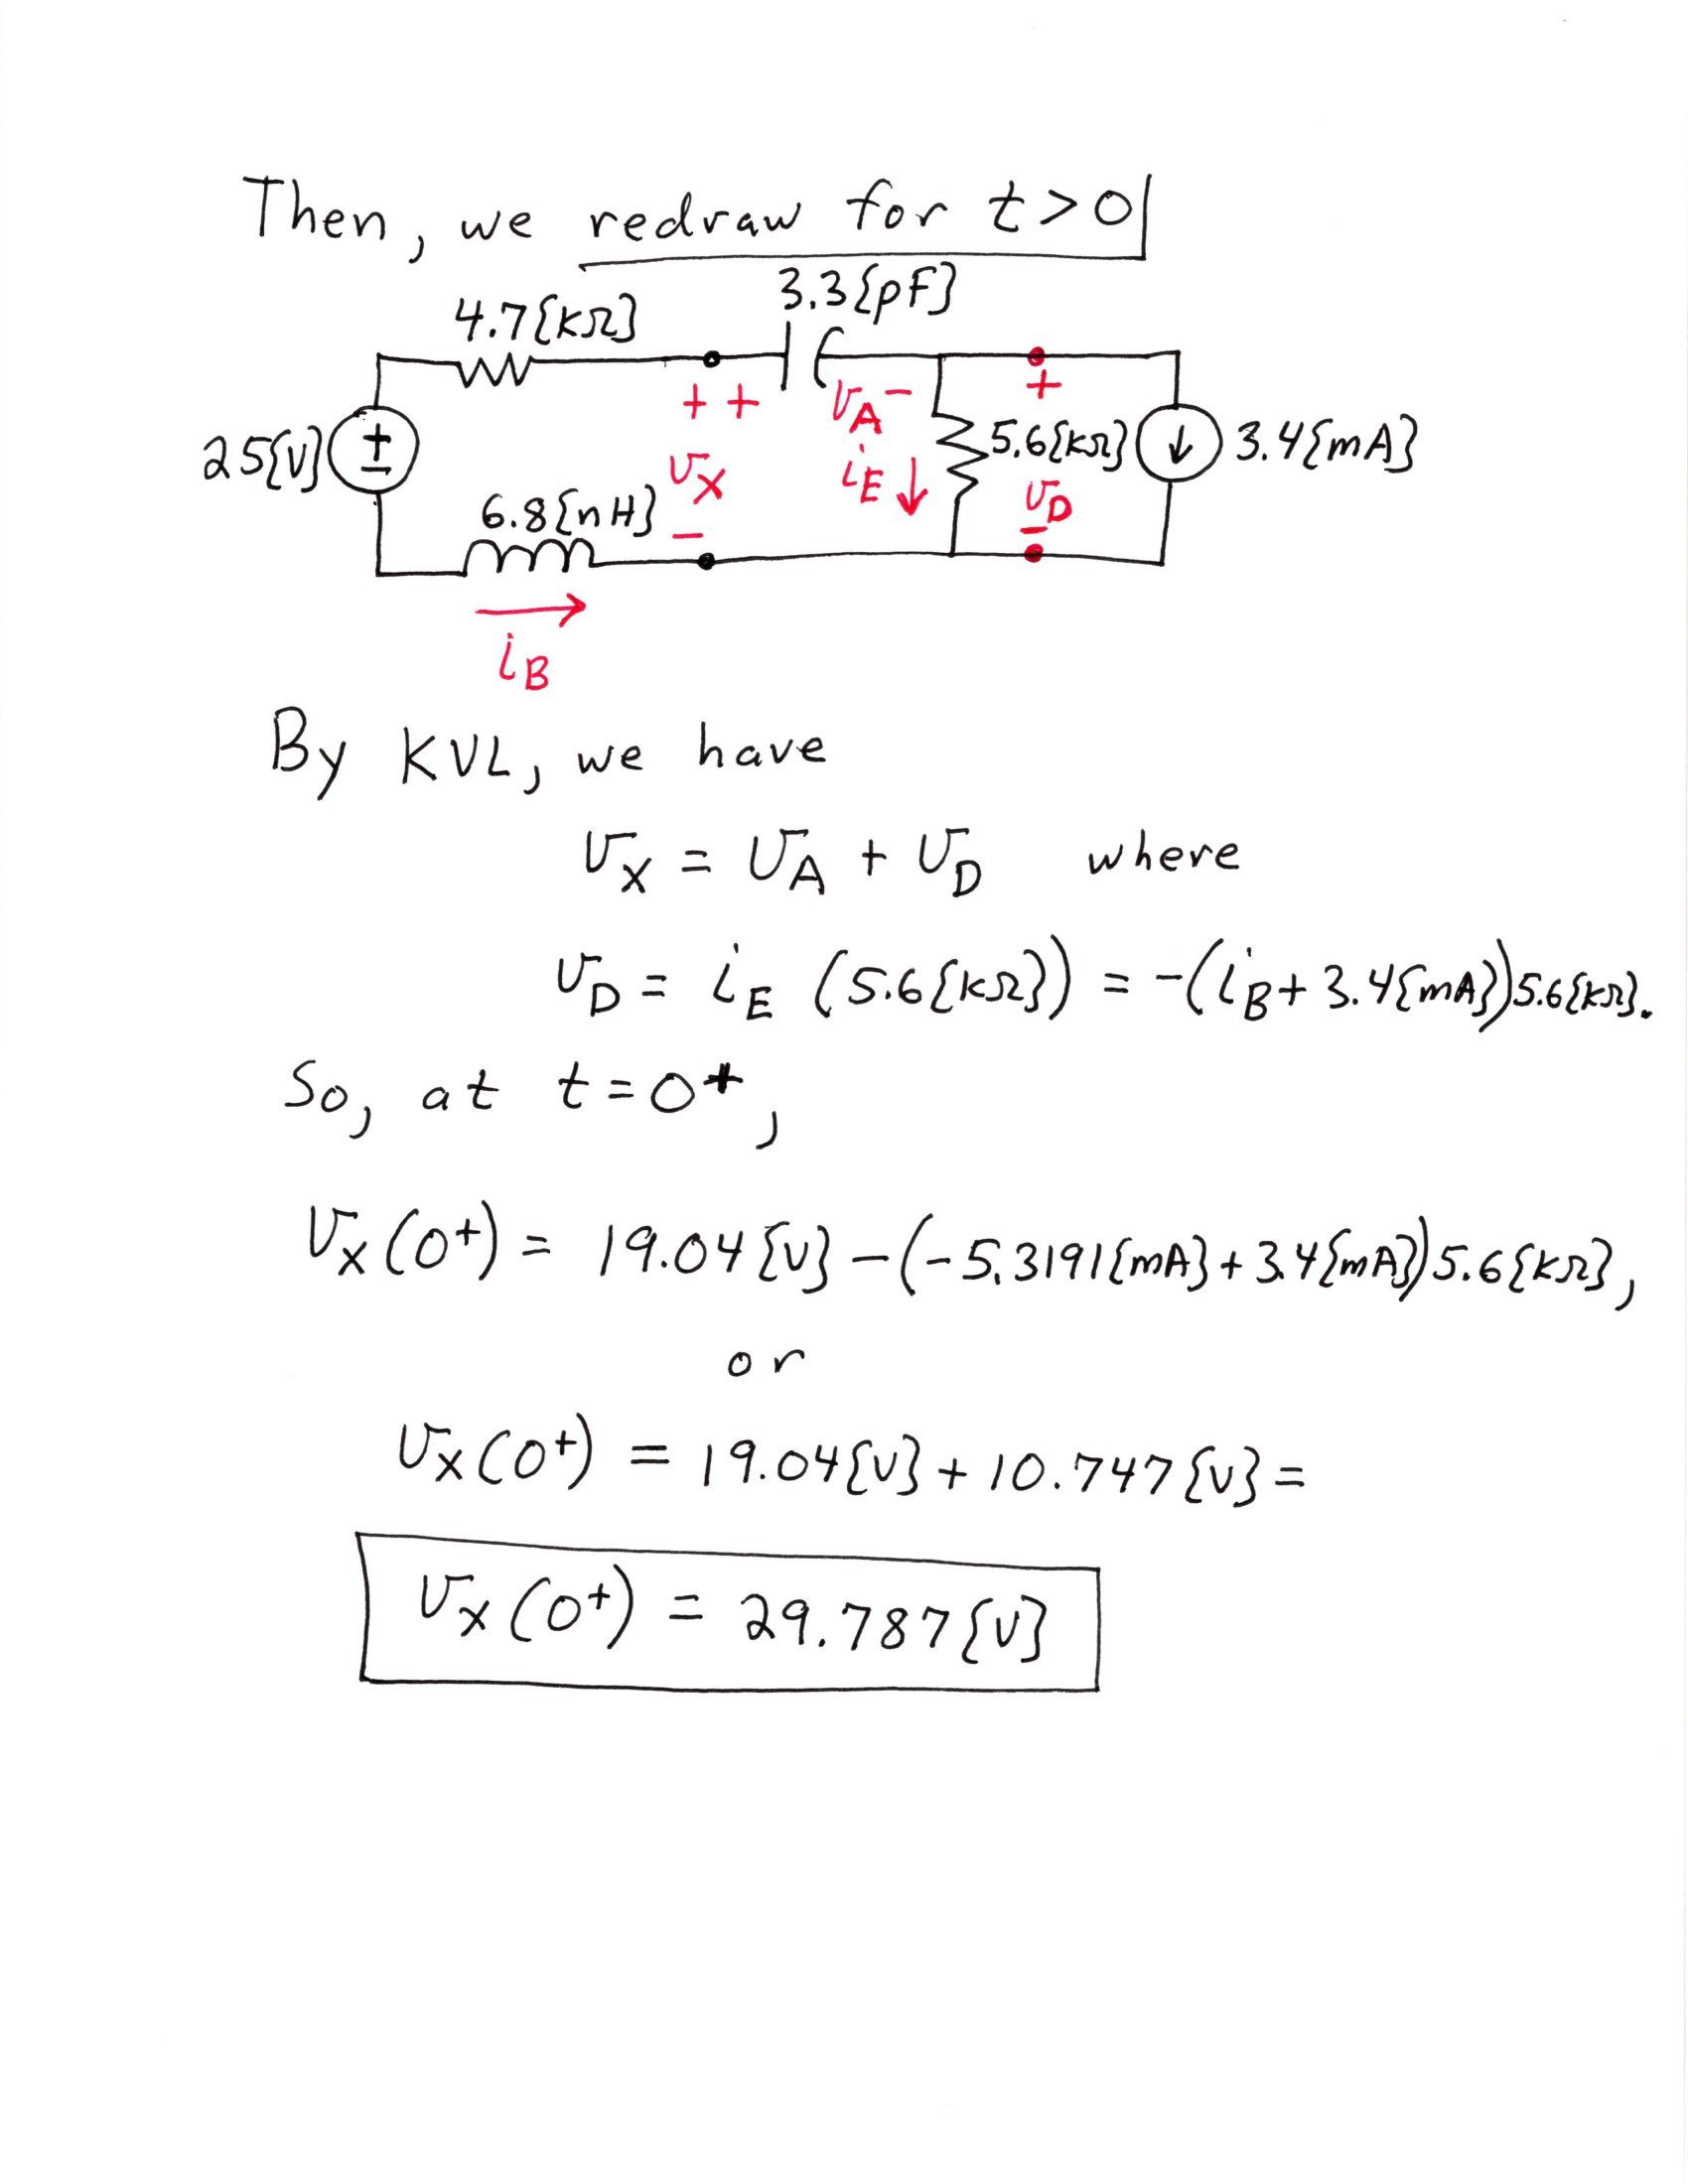 Then, we redraw for t>0
3.3{pF}
4.7{kΩ}
+ + v_A -
+
25{V} + - v_X i_E ↓ 5.6{kΩ} ↓ 3.4{mA}
6.8{nH} - v_D -
→
i_B
By KVL, we have
v_X = v_A + v_D where
v_D = i_E (5.6{kΩ}) = -(i_B + 3.4{mA})5.6{kΩ}.
So, at t=0⁺,
v_X(0⁺) = 19.04{V} - (-5.3191{mA} + 3.4{mA})5.6{kΩ},
or
v_X(0⁺) = 19.04{V} + 10.747{V} =
v_X(0⁺) = 29.787{V}